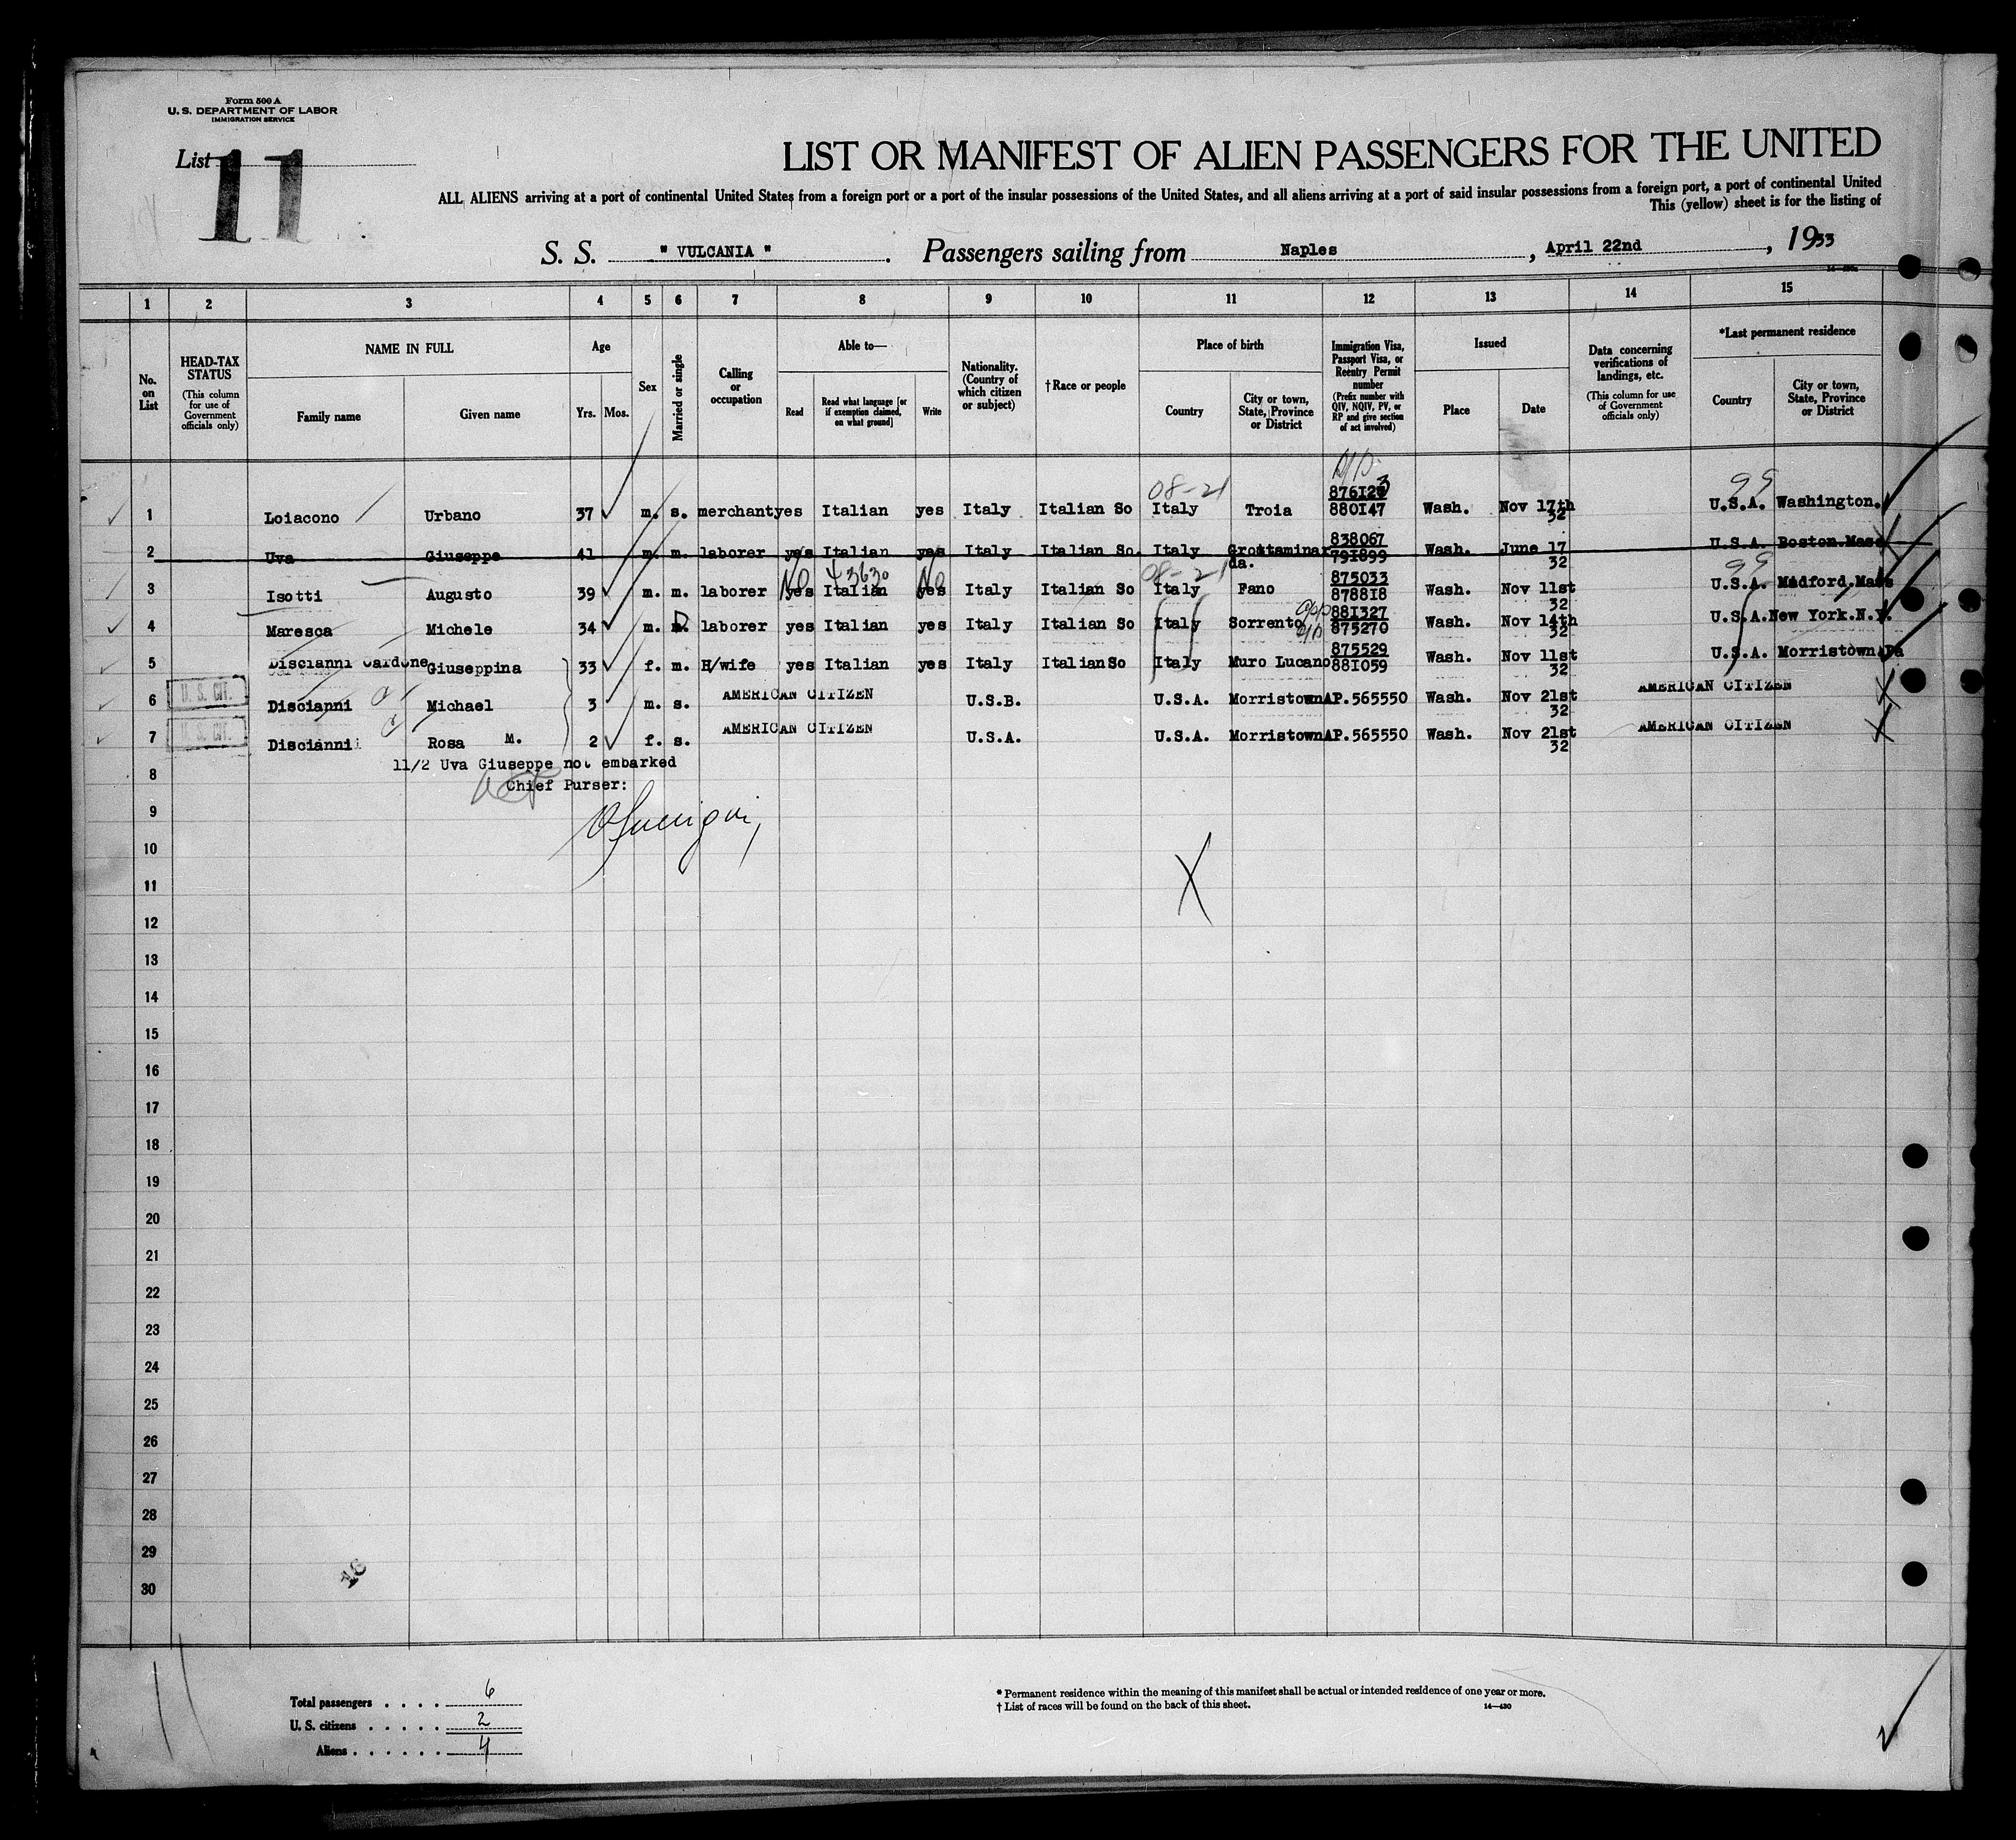 Form 500 A
U. S. DEPARTMENT OF LABOR
IMMIGRATION SERVICE
List 11
LIST OR MANIFEST OF ALIEN PASSENGERS FOR THE UNITED
ALL ALIENS arriving at a port of continental United States from a foreign port or a port of the insular possessions of the United States, and all aliens arriving at a port of said insular possessions from a foreign port, a port of continental United
This (yellow) sheet is for the listing of
S. S. " VULCANIA " . Passengers sailing from Naples , April 22nd , 1933
1 2 3 4 5 6 7 8 9 10 11 12 13 14 15
No. on List
HEAD-TAX STATUS (This column for use of Government officials only)
NAME IN FULL
Family name
Given name
Age
Yrs. Mos.
Sex
Married or single
Calling or occupation
Able to—
Read
Read what language [or if exemption claimed, on what ground]
Write
Nationality. (Country of which citizen or subject)
† Race or people
Place of birth
Country
City or town, State, Province or District
Immigration Visa, Passport Visa, or Reentry Permit number (Prefix number with QIV, NQIV, PV, or RP and give section of act involved)
Issued
Place
Date
Data concerning verifications of landings, etc. (This column for use of Government officials only)
*Last permanent residence
Country
City or town, State, Province or District
08-21 99
1 Loiacono Urbano 37 m. s. merchant yes Italian yes Italy Italian So Italy Troia 876123 880147 Wash. Nov 17th 32 U.S.A. Washington.
2 Uva Giuseppe 41 m. m. laborer yes Italian yes Italy Italian So. Italy Grottaminarda. 838067 791899 Wash. June 17 32 U.S.A. Boston.Mass
No 43630 No 08-21 99
3 Isotti Augusto 39 m. m. laborer yes Italian yes Italy Italian So Italy Fano 875033 878818 Wash. Nov 11st 32 U.S.A. Midford.Mass
4 Maresca Michele 34 m. D laborer yes Italian yes Italy Italian So Italy Sorrento 881327 875270 Wash. Nov 14th 32 U.S.A. New York.N.Y.
5 Discianni Cardone Giuseppina 33 f. m. H/wife yes Italian yes Italy Italian So Italy Muro Lucano 875529 881059 Wash. Nov 11st 32 U.S.A. Morristown.Pa
6 U. S. CIT. Discianni Michael 3 m. s. AMERICAN CITIZEN U.S.B. U.S.A. Morristown AP.565550 Wash. Nov 21st 32 AMERICAN CITIZEN
7 U. S. CIT. Discianni Rosa M. 2 f. s. AMERICAN CITIZEN U.S.A. U.S.A. Morristown AP.565550 Wash. Nov 21st 32 AMERICAN CITIZEN
11/2 Uva Giuseppe not embarked
8 Chief Purser:
9
10
11
12
13
14
15
16
17
18
19
20
21
22
23
24
25
26
27
28
29
30
Total passengers . . . . 6
U. S. citizens . . . . . 2
Aliens . . . . . . 4
* Permanent residence within the meaning of this manifest shall be actual or intended residence of one year or more.
† List of races will be found on the back of this sheet.
14—430